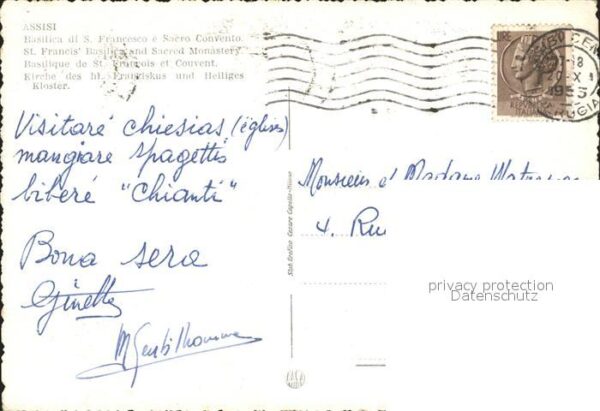 ASSISI
Basilica di S. Francesco e Sacro Convento.
St. Francis' Basilica and Sacred Monastery.
Basilique de St. François et Couvent.
Kirche des hl. Franziskus und Heiliges
Kloster.
Visitaré chiesias (églises)
mangiare spagettis
biberé "Chianti"
Bona sera
Ginette
M Gentilhomme
Monsieur et Madame
4. Rue
privacy protection
Datenschutz
Stab Grafico Cesare Capello-Milano
1953